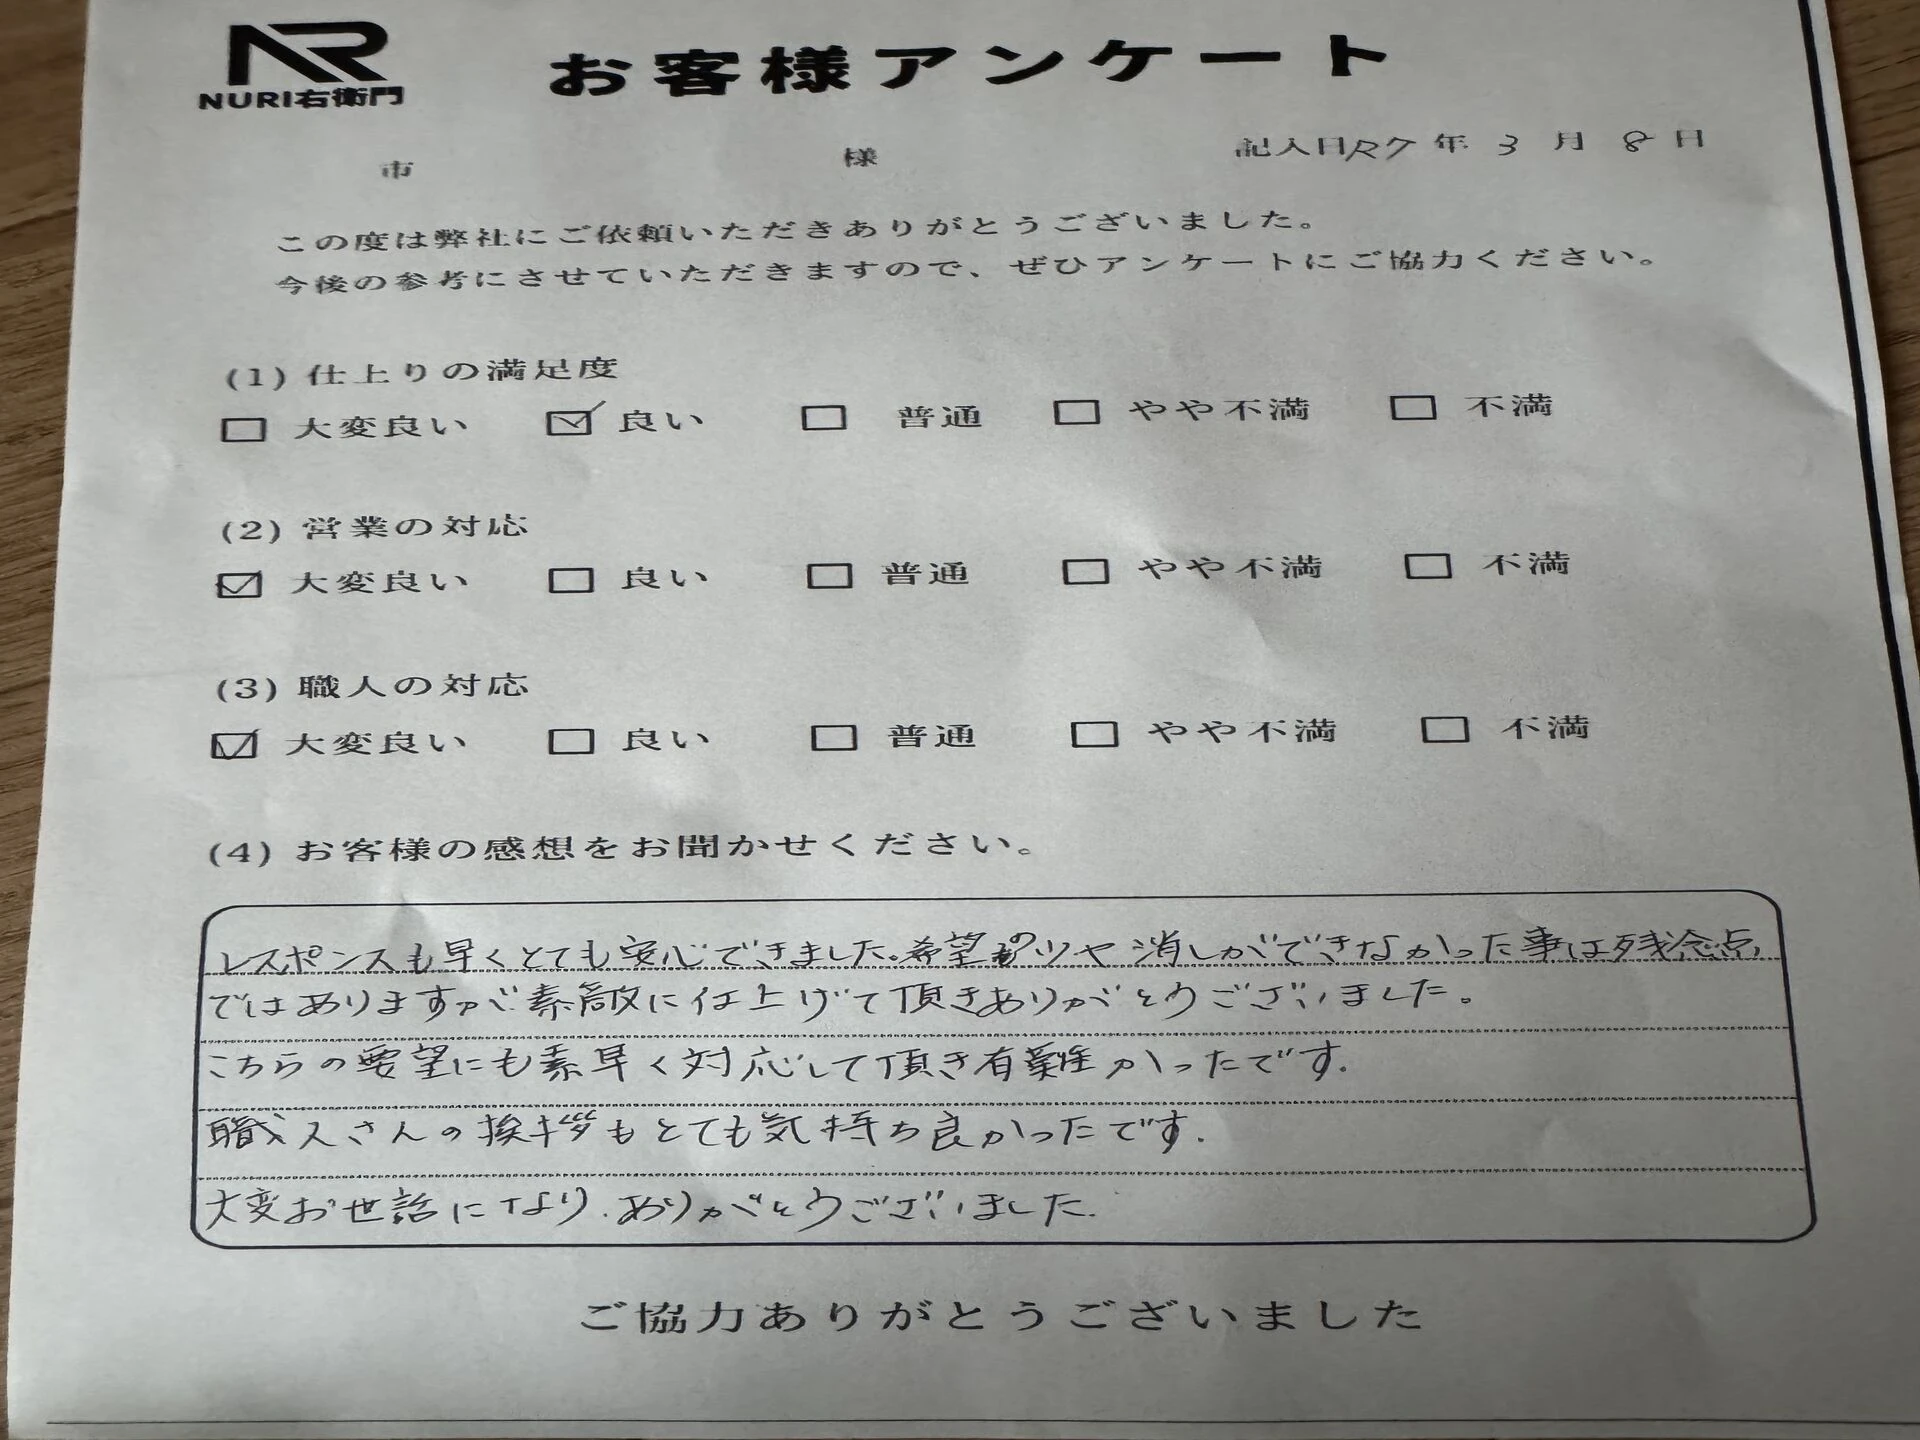 NR
NURI右衛門
お客様アンケート
市 様 記入日R7年3月8日
この度は弊社にご依頼いただきありがとうございました。
今後の参考にさせていただきますので、ぜひアンケートにご協力ください。
(1) 仕上りの満足度
□ 大変良い ☑ 良い □ 普通 □ やや不満 □ 不満
(2) 営業の対応
☑ 大変良い □ 良い □ 普通 □ やや不満 □ 不満
(3) 職人の対応
☑ 大変良い □ 良い □ 普通 □ やや不満 □ 不満
(4) お客様の感想をお聞かせください。
レスポンスも早くとても安心できました。希望のツヤ消しができなかった事は残念点
ではありますが、素敵に仕上げて頂きありがとうございました。
こちらの要望にも素早く対応して頂き有難かったです.
職人さんの挨拶もとても気持ち良かったです.
大変お世話になり、ありがとうございました.
ご協力ありがとうございました